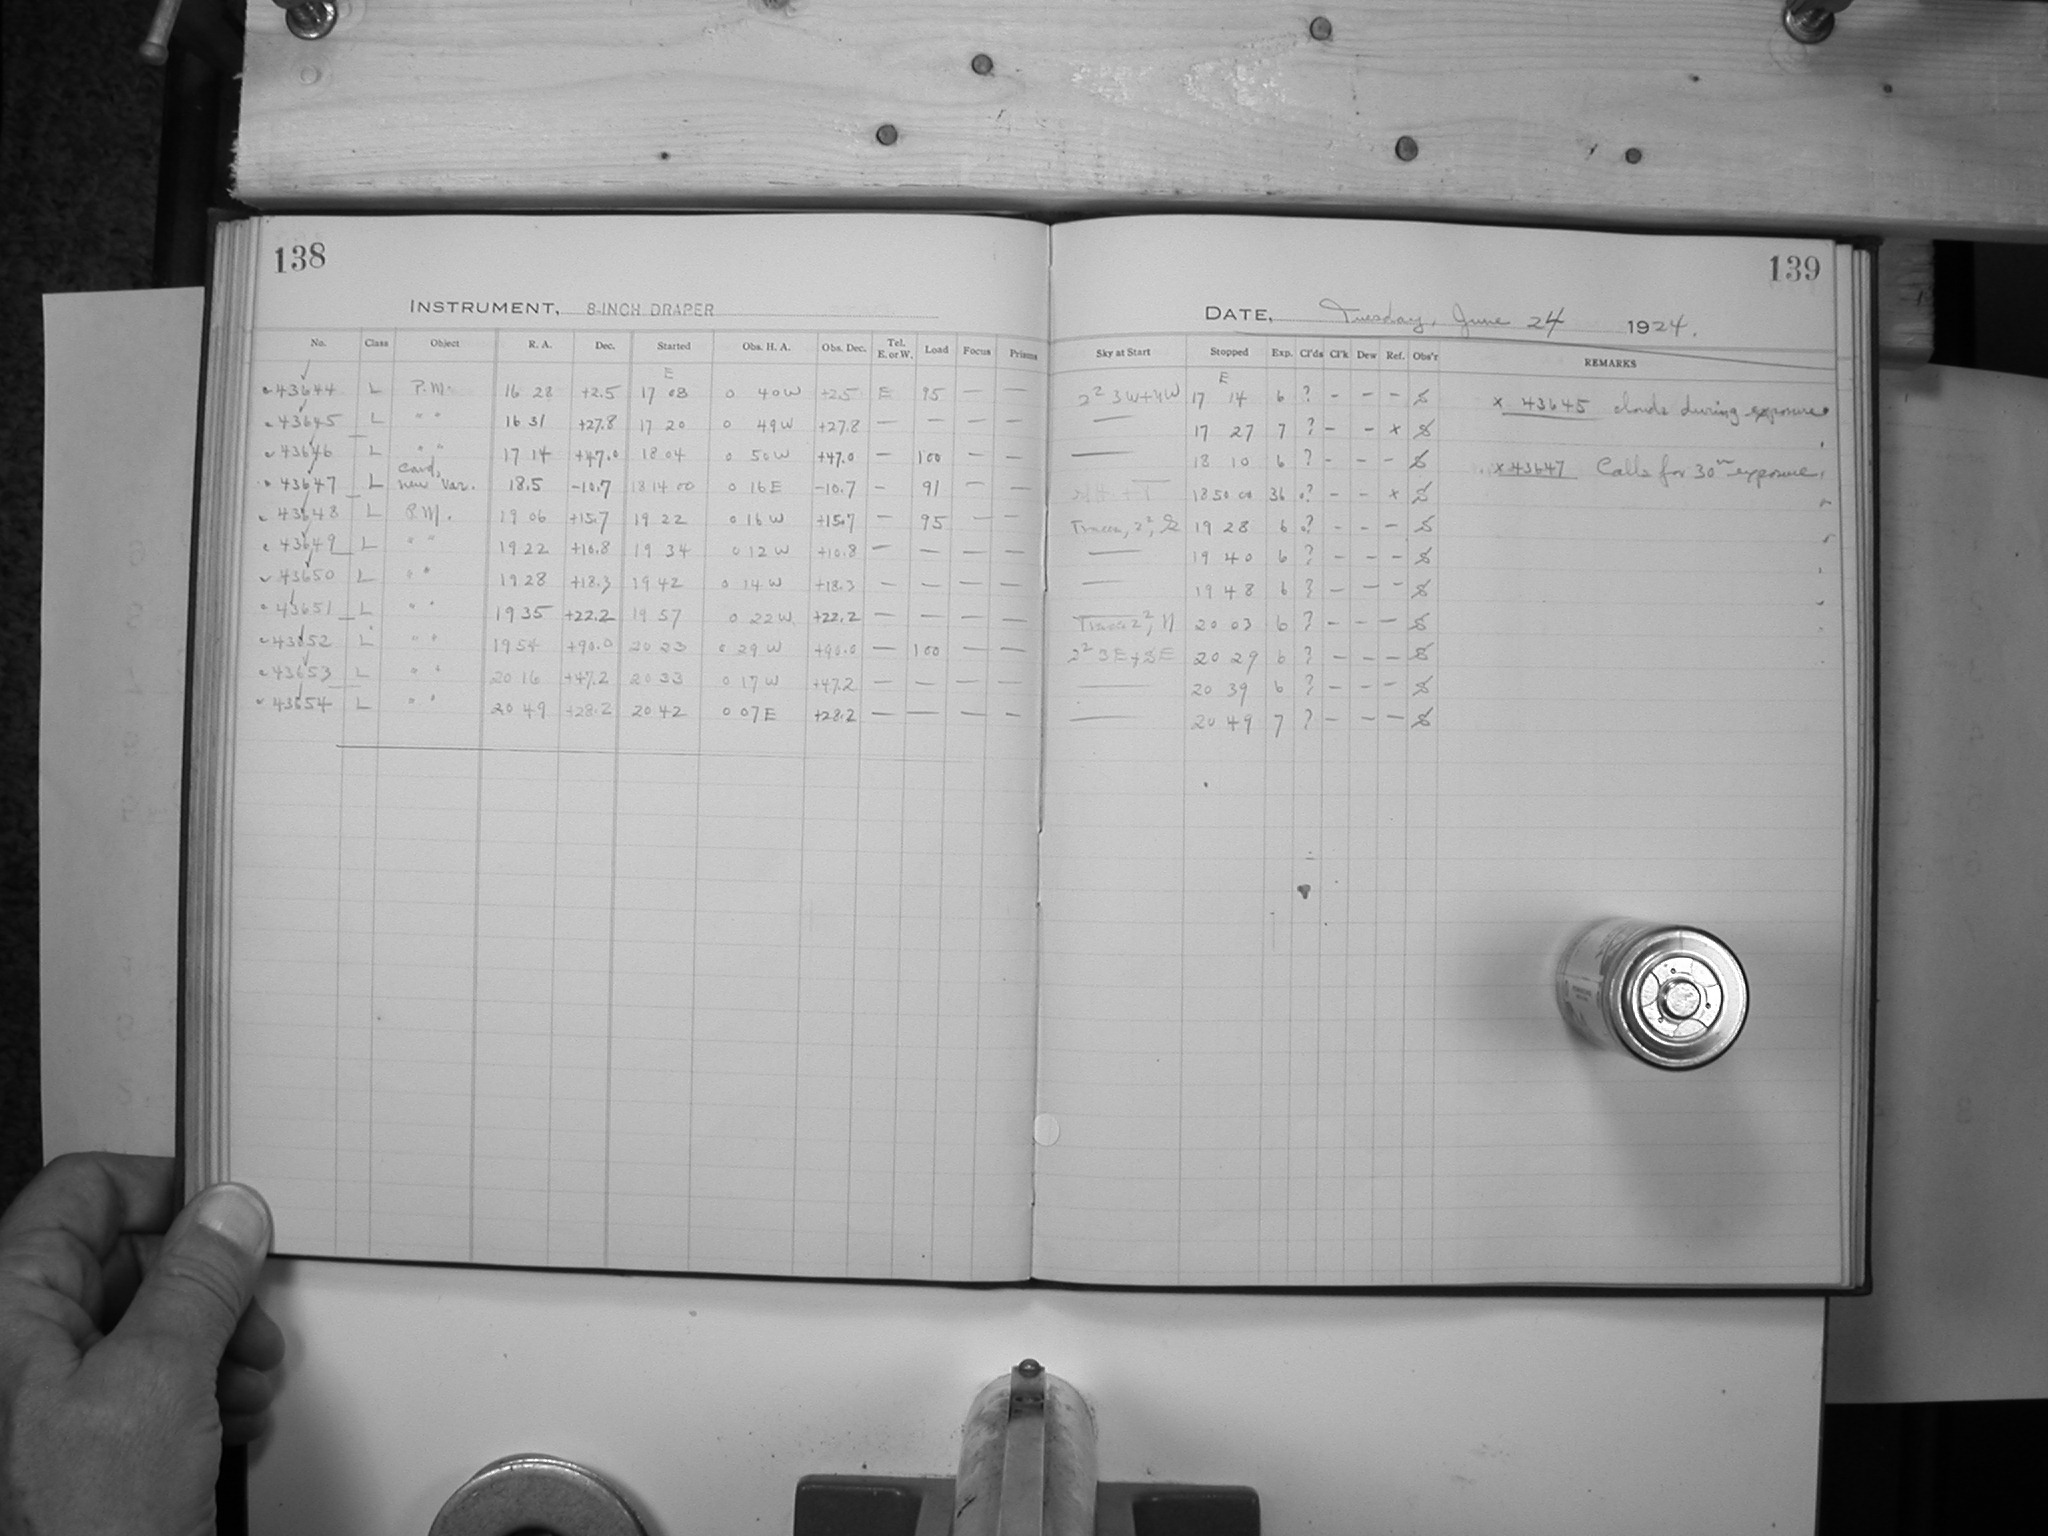 138
INSTRUMENT, 8-INCH DRAPER
No. Class Object R. A. Dec. Started Obs. H. A. Obs. Dec. Tel. E. or W. Load Focus Prisms
E
43644 L P.M. 16 28 +2.5 17 08 0 40 W +2.5 E 95 — —
43645 L " " 16 31 +27.8 17 20 0 49 W +27.8 — — — —
43646 L " " 17 14 +47.0 18 04 0 50 W +47.0 — 100 — —
43647 L Cand. new Var. 18.5 -10.7 18 14 00 0 16 E -10.7 - 91 — —
43648 L P.M. 19 06 +15.7 19 22 0 16 W +15.7 — 95 — —
43649 L " " 19 22 +10.8 19 34 0 12 W +10.8 — — — —
43650 L " " 19 28 +18.3 19 42 0 14 W +18.3 — — — —
43651 L " " 19 35 +22.2 19 57 0 22 W +22.2 — — — —
43652 L " " 19 54 +90.0 20 23 0 29 W +90.0 — 100 — —
43653 L " " 20 16 +47.2 20 33 0 17 W +47.2 — — — —
43654 L " " 20 49 +28.2 20 42 0 07 E +28.2 — — — —
139
DATE, Tuesday, June 24 1924.
Sky at Start Stopped Exp. Cl'ds Cl'k Dew Ref. Obs'r REMARKS
E
17 14 6 ? - - - x 43645 clouds during exposure
— 17 27 7 ? - - x
— 18 10 6 ? - - - x 43647 Calls for 30m exposure.
18 50 00 36 ? - - x
Traces, 2², 19 28 6 ? - - -
— 19 40 6 ? - - -
— 19 48 6 ? - - -
20 03 6 ? - - -
2² 3E+SE 20 29 6 ? - - -
— 20 39 6 ? - - -
— 20 49 7 ? - - -